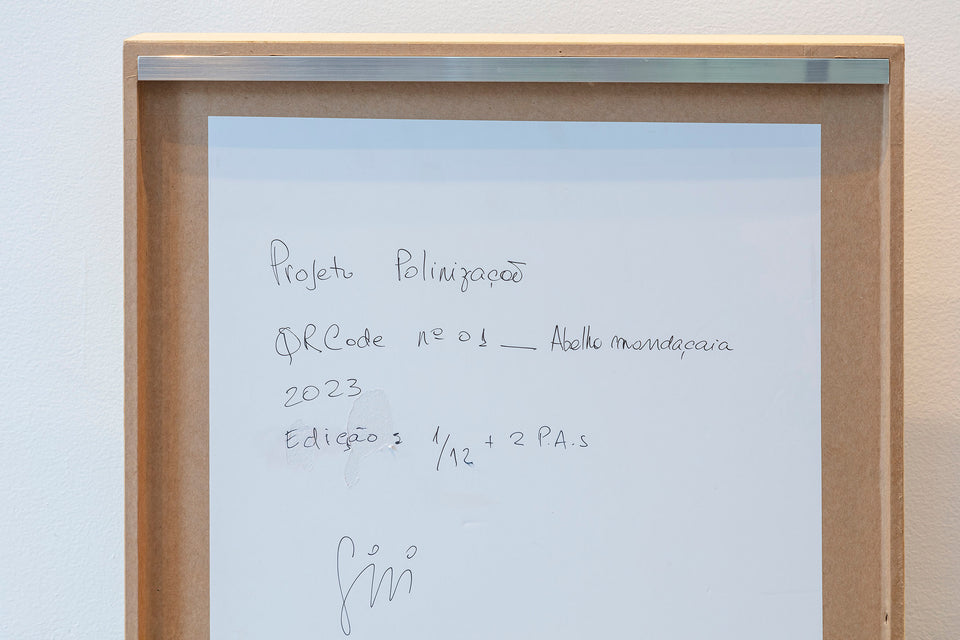 Projeto Polinização
QRCode nº 01 — Abelha mandaçaia
2023
Edição: 1/12 + 2 P.A.s